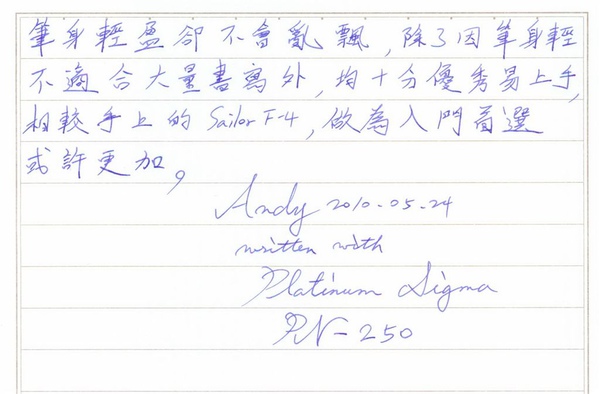 筆身輕盈卻不會亂飄,除了因筆身輕
不適合大量書寫外,均十分優秀易上手,
相較手上的 Sailor F-4,做為入門首選
或許更加。
Andy 2010.05.24
written with
Platinum Sigma
PN-250